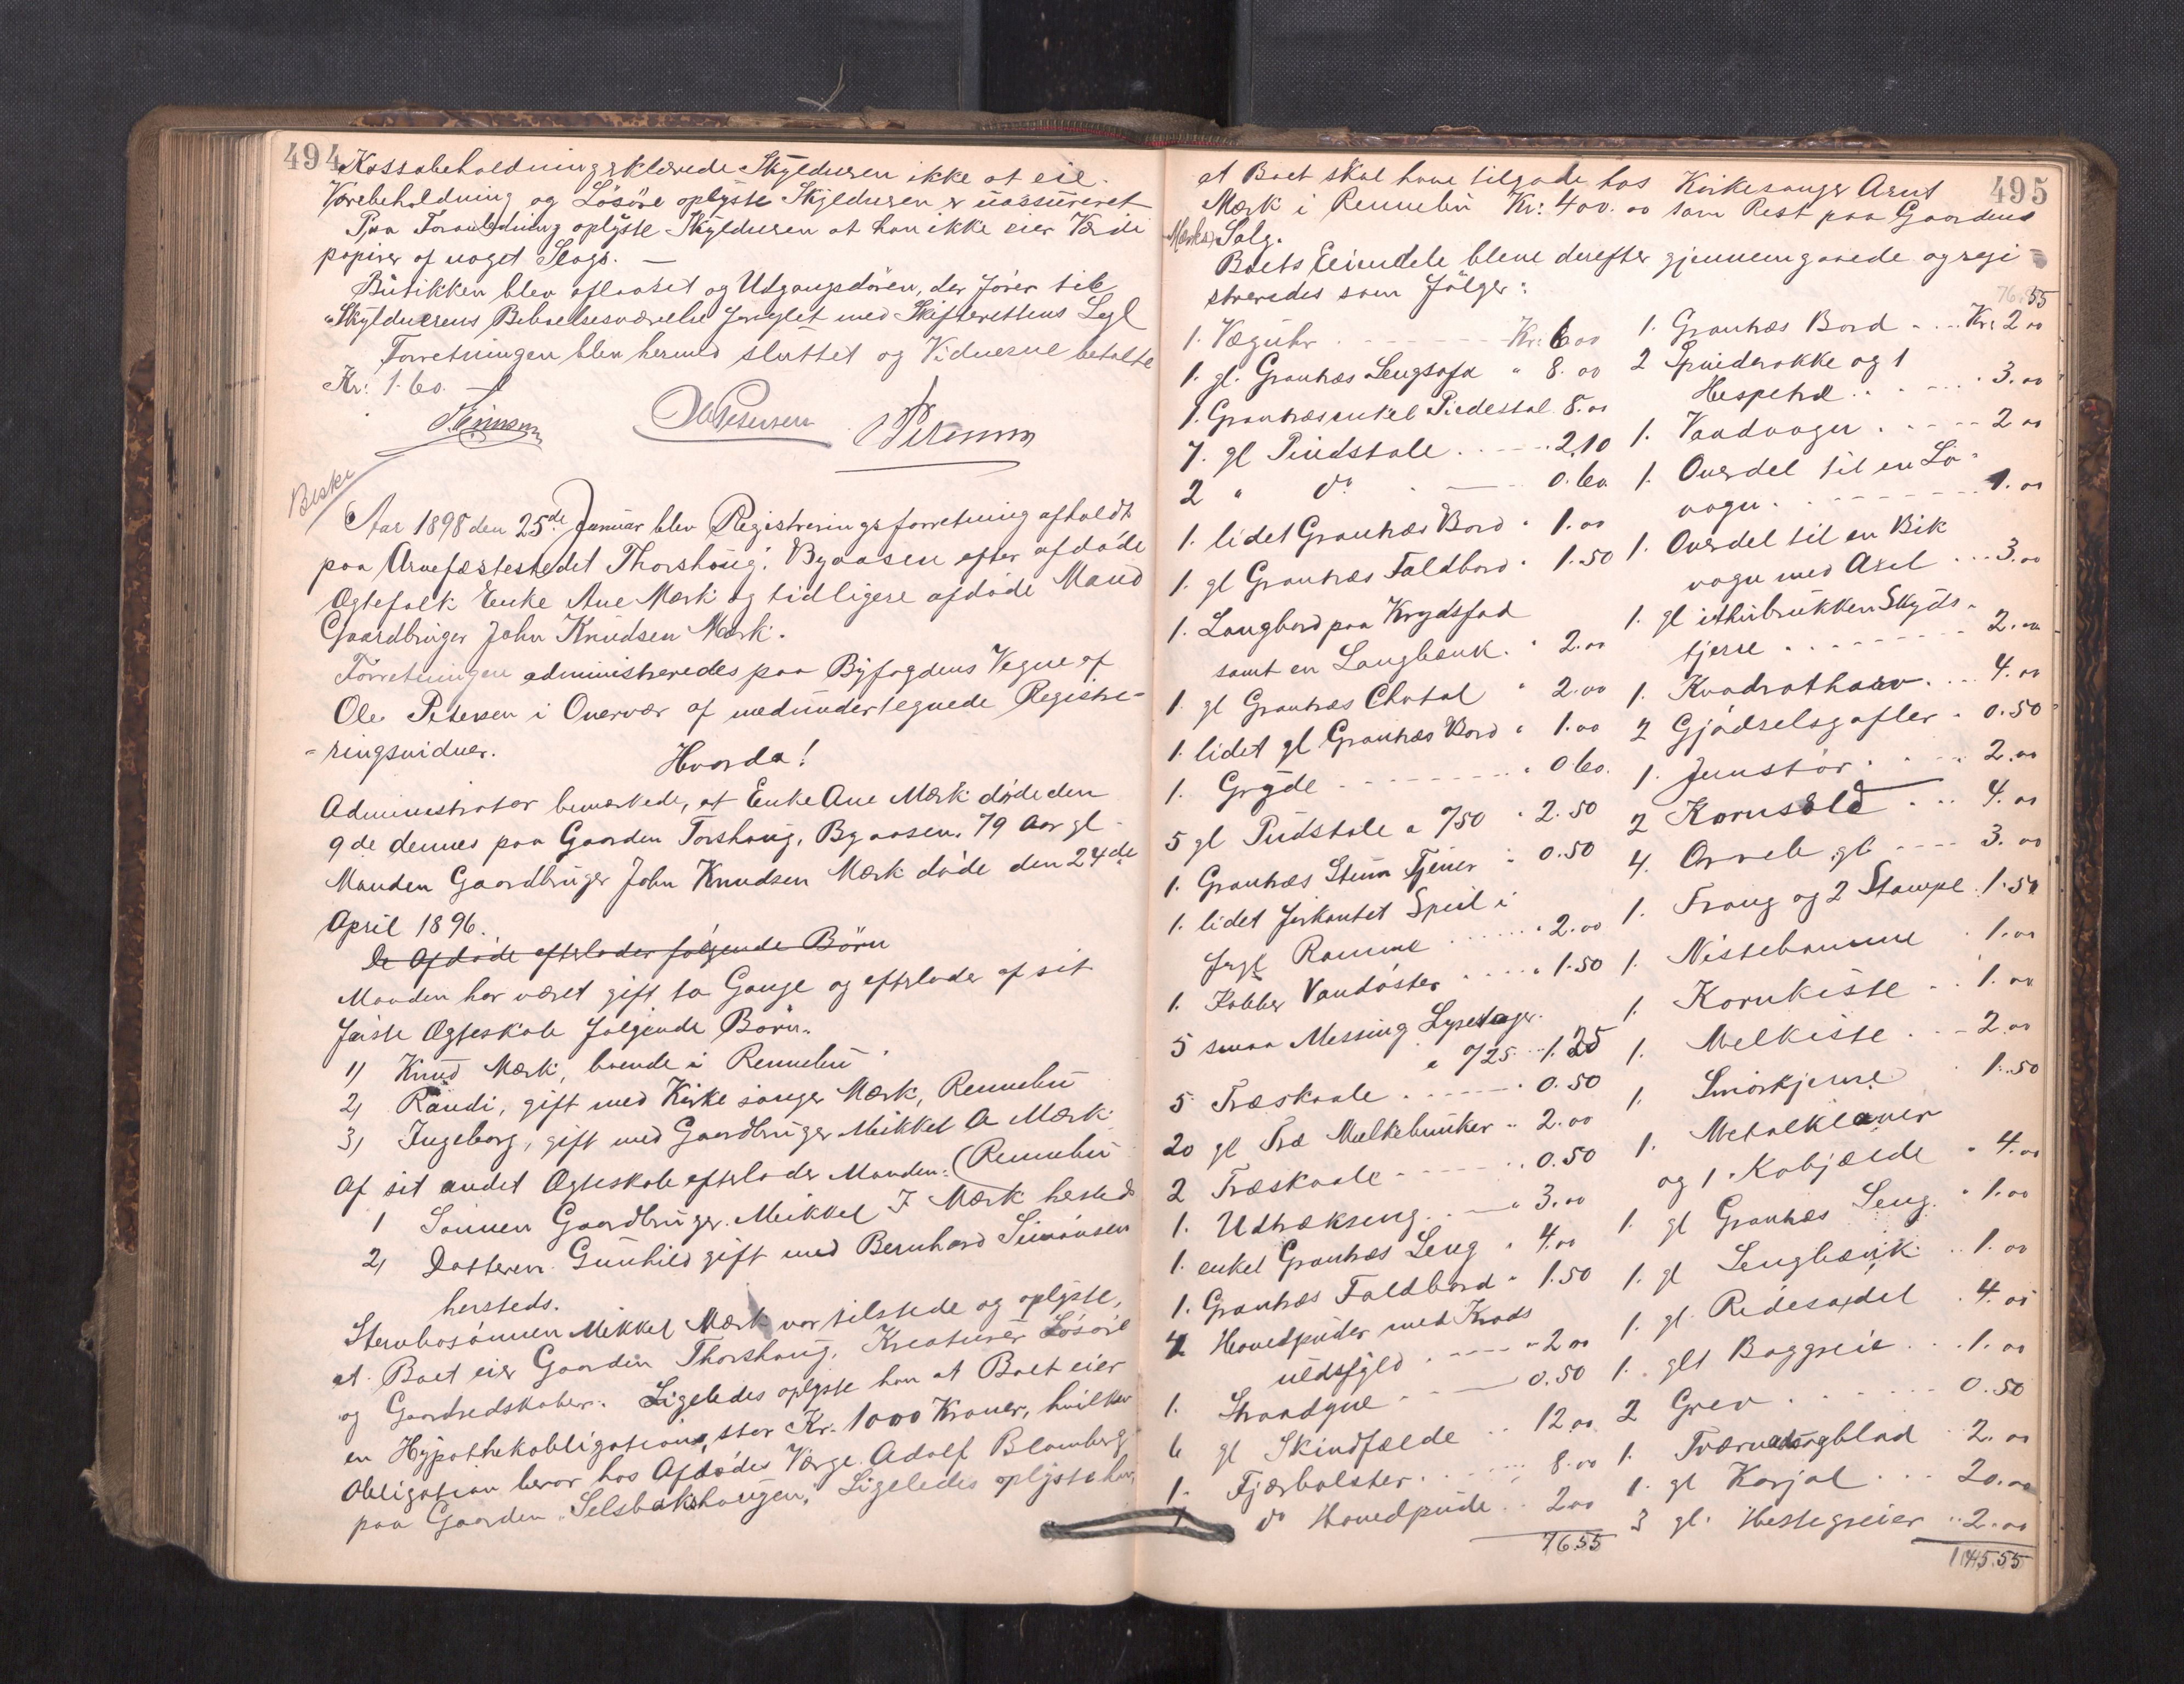 494
Kassabeholdning erklærede Skyldneren ikke at eie.
Varebeholdning og Løsøre oplyste Skyldneren er uassureret
Paa Foranledning oplyste Skyldneren at han ikke eier Værdi
papirer af noget Slags. —
Butikken blev aflaaset og Udgangsdøren, der fører til
Skyldnerens Beboelsesværelse forseglet med Skifterettens Segl
Forretningen blev hermed sluttet og Vidnerne betalte
Kr: 1.60.
O Petersen
Beski
Aar 1898 den 25de Januar blev Registreringsforretning afholdt
paa Arvefæstestedet Thorshaug i Byaasen efter afdøde
Ægtefolk Enke Ane Mærk og tidligere afdøde Mand
Gaardbruger John Knudsen Mærk.
Forretningen administreredes paa Byfogdens Vegne af
Ole Petersen i Overvær af medundertegnede Registre-
-ringsvidner.
Hvorda!
Administrator bemærkede, at Enke Ane Mærk døde den
9de dennes paa Gaarden Torshaug, Byaasen, 79 Aar gl.
Manden Gaardbruger John Knudsen Mærk døde den 24de
April 1896.
De Afdøde efterlader følgende Børn
Manden har været gift to Gange og efterlader af sit
første Ægteskab følgende Børn.
1) Knud Mærk, boende i Rennebu
2) Randi, gift med Kirkesanger Mærk, Rennebu
3) Ingeborg, gift med Gaardbruger Mikkel A Mærk
(Rennebu
Af sit andet Ægteskab efterlader Manden:
1 Sønnen Gaardbruger Mikkel J Mærk hersteds
2) Datteren Gunhild gift med Bernhard Simonsen
hersteds.
Stervbosønnen Mikkel Mærk var tilstede og oplyste,
at Boet eier Gaarden Thorshaug, Kreaturer Løsøre
og Gaardredskaber. Ligeledes oplyste han at Boet eier
en Hypothekobligation, stor Kr. 1000 Kroner, hvilken
Obligation beror hos Afdødes Værge Adolf Blomberg
paa Gaarden "Selsbakhaugen," Ligeledes oplyste han,
495
at Boet skal have tilgode hos Kirkesanger Arnt
Mærk i Rennebu Kr: 400.00 som Rest paa Gaarden
Mærks Salg.
Boets Eiendele bleve derefter gjennemgaaede og regi-
streredes som følger:
1. Væguhr Kr: 6.00
1. gl. Grantræs Sengsofa " 8.00
1. Grantræs enkel Piedestal 8.00
7. gl Pindstole 2.10
2 " do 0.60
1. lidet Grantræs Bord " 1.00
1. gl Grantræs Faldbord " 1.50
1. Langbord paa Krydsfod
samt en Langbænk " 2.00
1. gl Grantræs Chatol " 2.00
1. lidet gl Grantræs Bord " 1.00
1. Gryde " 0.60.
5 gl Pindstole a /50 " 2.50
1. Grantræs Stum Tjener " 0.50
1. lidet firkantet Speil i
forgt Ramme " 2.00
1. Kobber Vandøster " 1.50
5 smaa Messing Lysestager
a /25 1.25
5 Træskaale " 0.50
20 gl Træ Mælkebunker " 2.00
2 Træskaale " 0.50
1. Udtrækseng " 3.00
1. enkel Grantræs Seng " 4.00
1. Grantræs Faldbord " 1.50
4 Hovedpuder med Krads
uldsfyld " 2.00
1. Straadyne 0.50
6 gl Skindfælde 12.00
1. Fjærbolster 8.00
1 do Hovedpude 2.00
76.55
76.55
1. Grantræs Bord Kr: 2.00
2 Spinderokke og 1
Hespetræ 3.00
1. Vandvogn 2.00
1. Overdel til en Lo-
vogn 1.00
1. Overdel til en Bik
vogn med Axel 3.00
1. gl ithubrukken Skyds-
kjerre 2.00
1. Kvadratharv 4.00
2 Gjødselsgafler 0.50
1. Jernstør 2.00
2 Kornsold 4.00
4. Orveh gl 3.00
1. Traug og 2 Stampe 1.50
1. Nistebomme 1.00
1. Kornkiste 1.00
1. Melkiste 2.00
1. Smørkjerne 1.50
1. Metalklaver
og 1 Kobjælde 4.00
1. gl Grantræs Seng 1.00
1. gl Sengbænk 1.00
1. gl. Ridesadel 4.00
1. glt Baggreie 1.00
2 Grev 0.50
1. Tværvedsagblad 2.00
1. gl Karjol 20.00
3 gl. Hestegreier 2.00
145.55